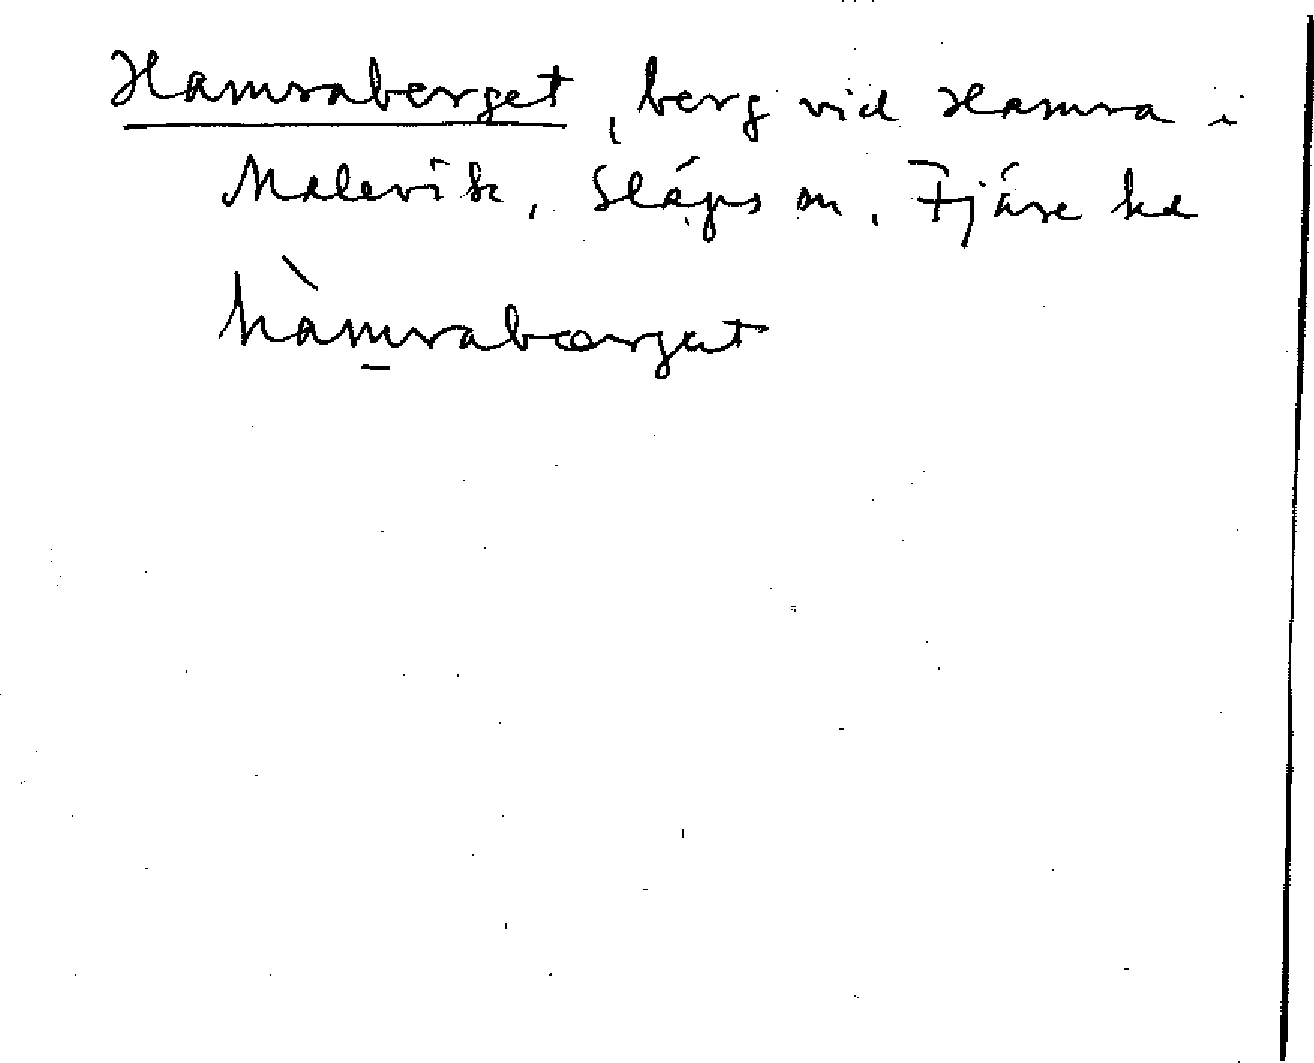 Hamraberget, berg vid Hamra i
Malevik, Släps sn, Fjäre hd
hàm̱rabærgat